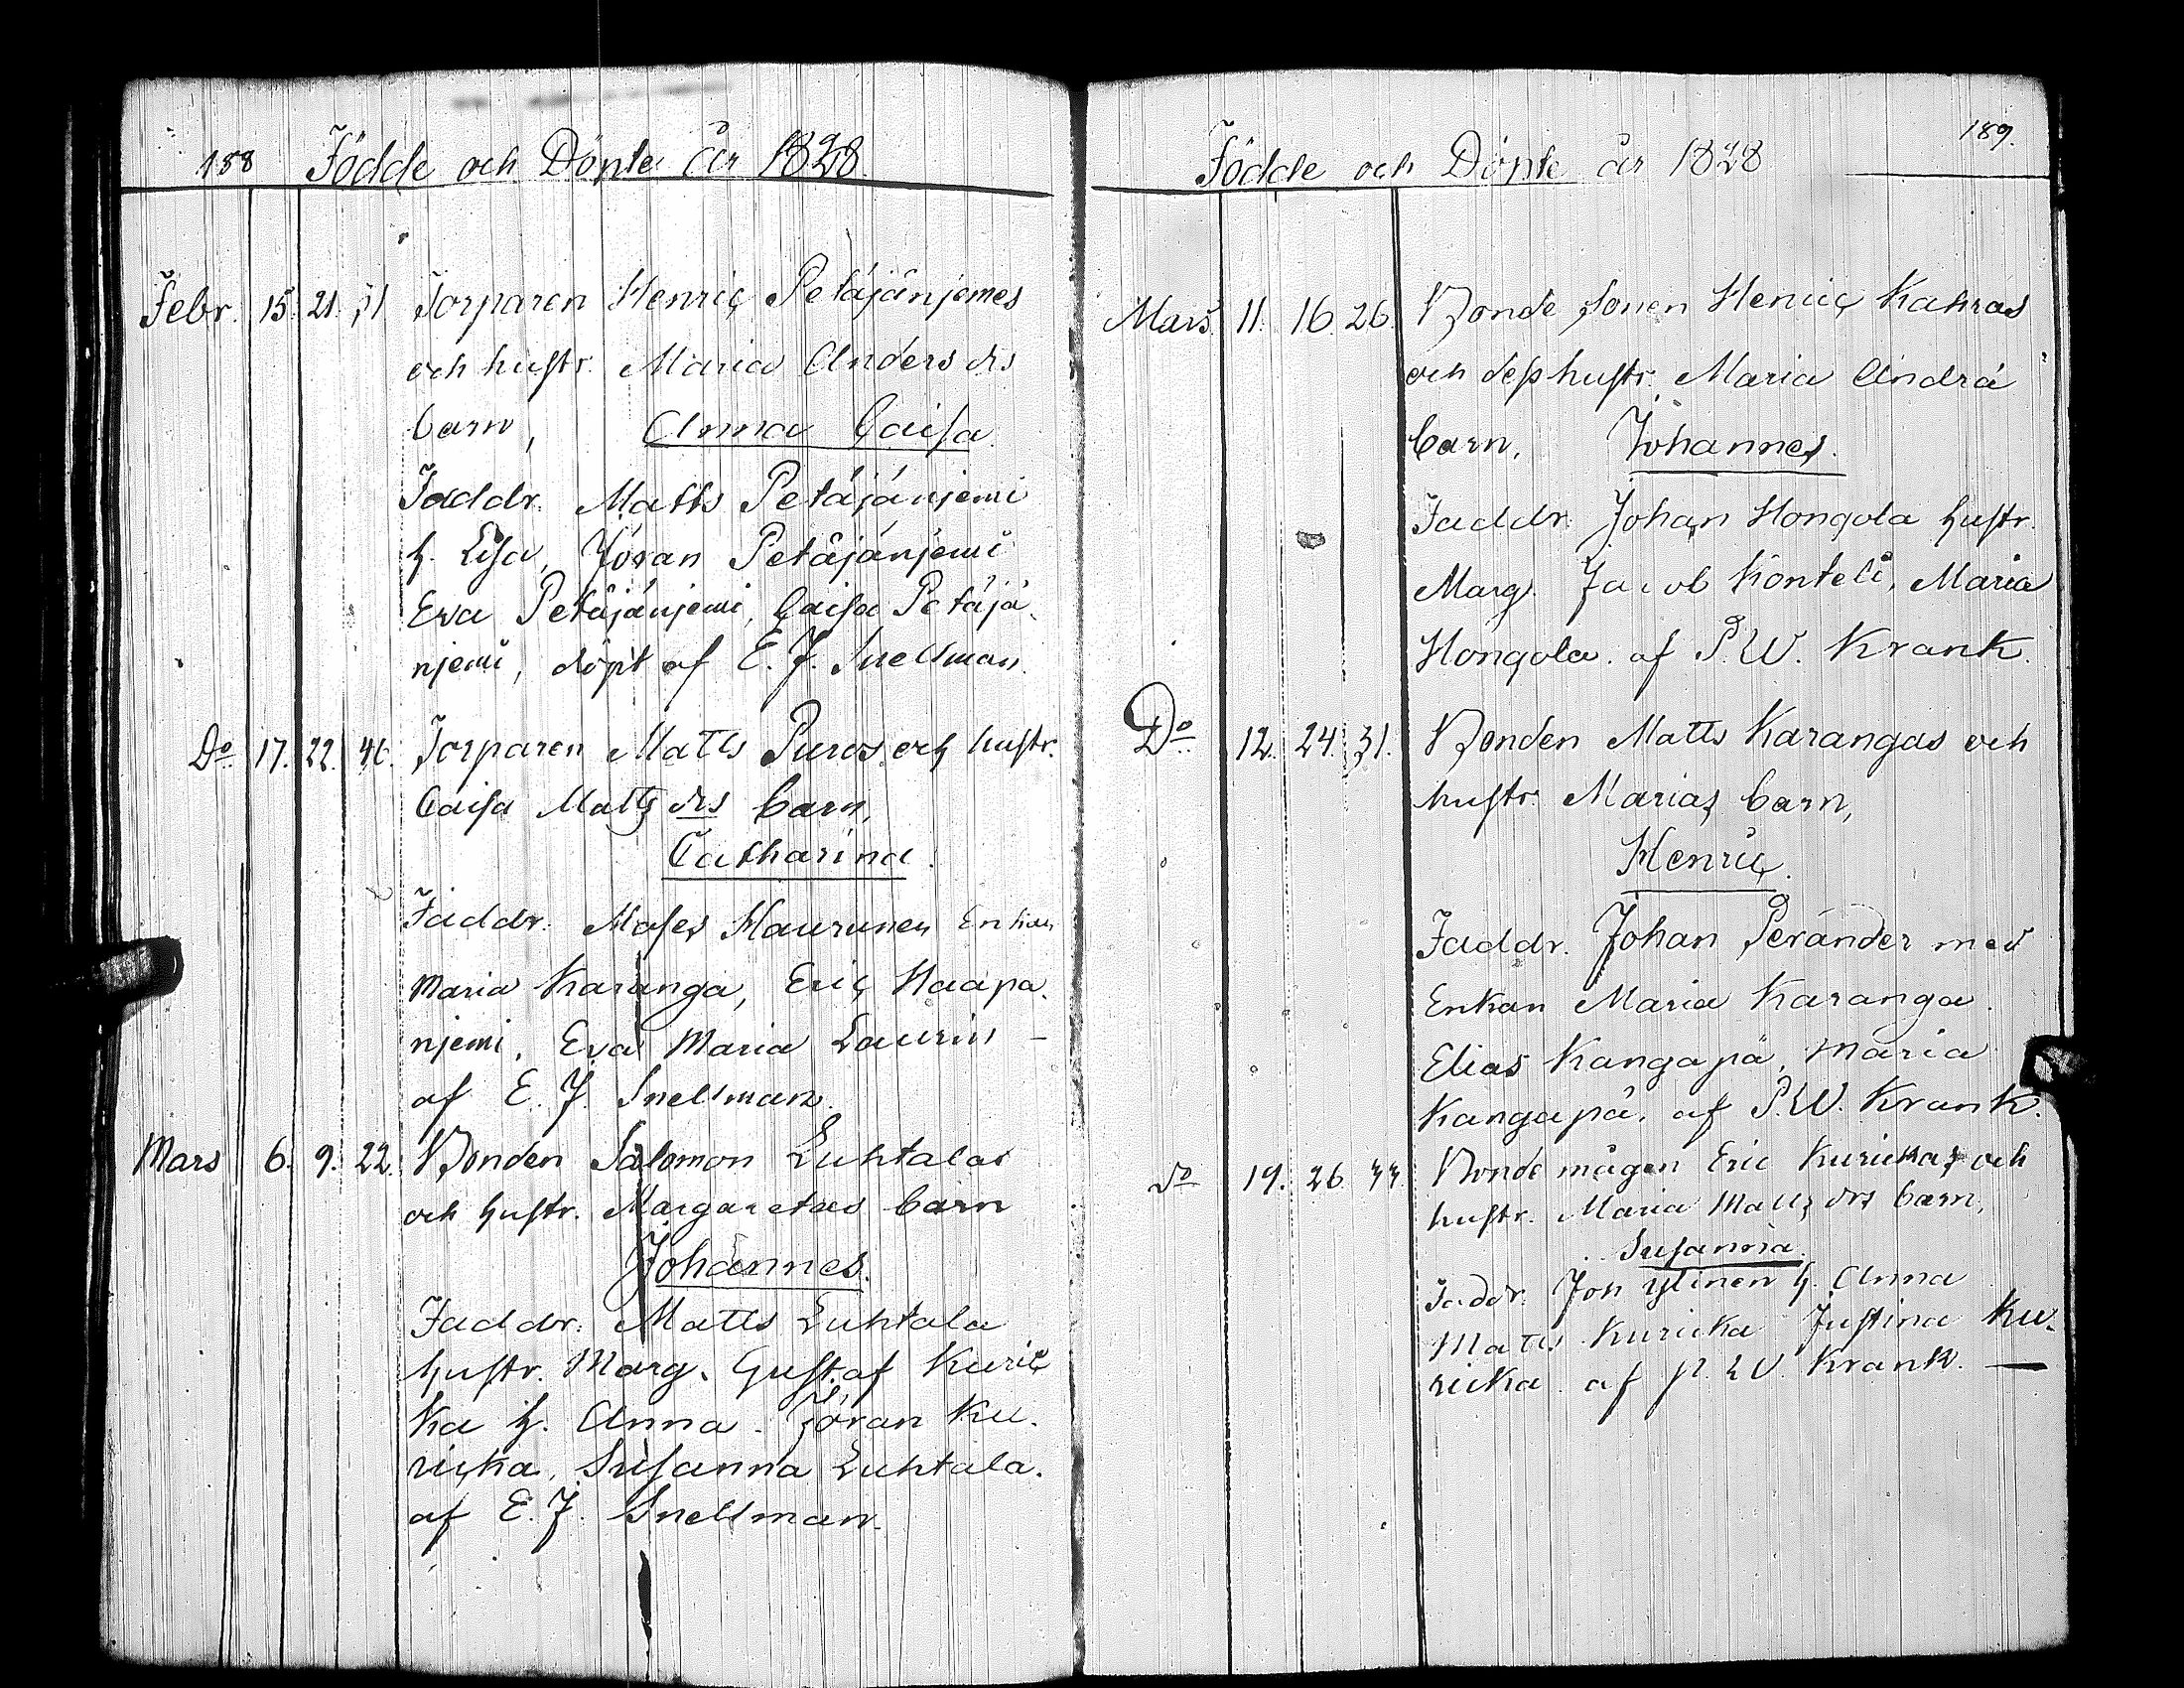 188 Födde och Döpte år 1828
Febr. 15. 21. 31 Torparen Henric Petäjänjemes
och hustr. Maria Anders drs
barn, Anna Caisa
Faddr. Matts Petäjänjemi
h. Lisa, Jöran Petäjänjemi
Eva Petäjänjemi, Caisa Petäjä-
njemi, döpt af E. J. Snellman.
Do 17. 22. 46. Torparen Matts Puros och hustr.
Caisa Matts drs barn,
Catharina.
Faddr. Moses Haurunen Enkan
Maria Karanga, Eric Haapa-
njemi, Eva Maria Laurin –
af E. J. Snellman.
Mars 6. 9. 22. Bonden Salomon Luhtalas
och hustr. Margaretas barn
Johannes.
Faddr. Matts Luhtala
hustr. Marg. Gustaf Kuric
ka h. Anna. Jöran Ku-
ricka, Susanna Luhtala.
af E. J. Snellman.
189.
Födde och Döpte år 1828
Mars. 11. 16. 26. Bonde sonen Henric Kahras
och dess hustr. Maria Andrä
barn, Johannes.
Faddr. Johan Hongola hustr.
Marg. Jacob Könteli, Maria
Hongola. af P. W. Krank.
Do 12. 24. 31. Bonden Matts Karangas och
hustr. Marias barn,
Henric.
Faddr. Johan Peränder med
Enkan Maria Karanga.
Elias Kangapä, Maria
Kangapä, af P. W. Krank.
do 19. 26. 33. Bonde mågen Eric Kurickas och
hustr. Maria Matts drs barn,
Susanna.
Faddr. Joh Ylinen h. Anna
Matts Kuricka Justina Ku-
ricka. af P. W. Krank. —